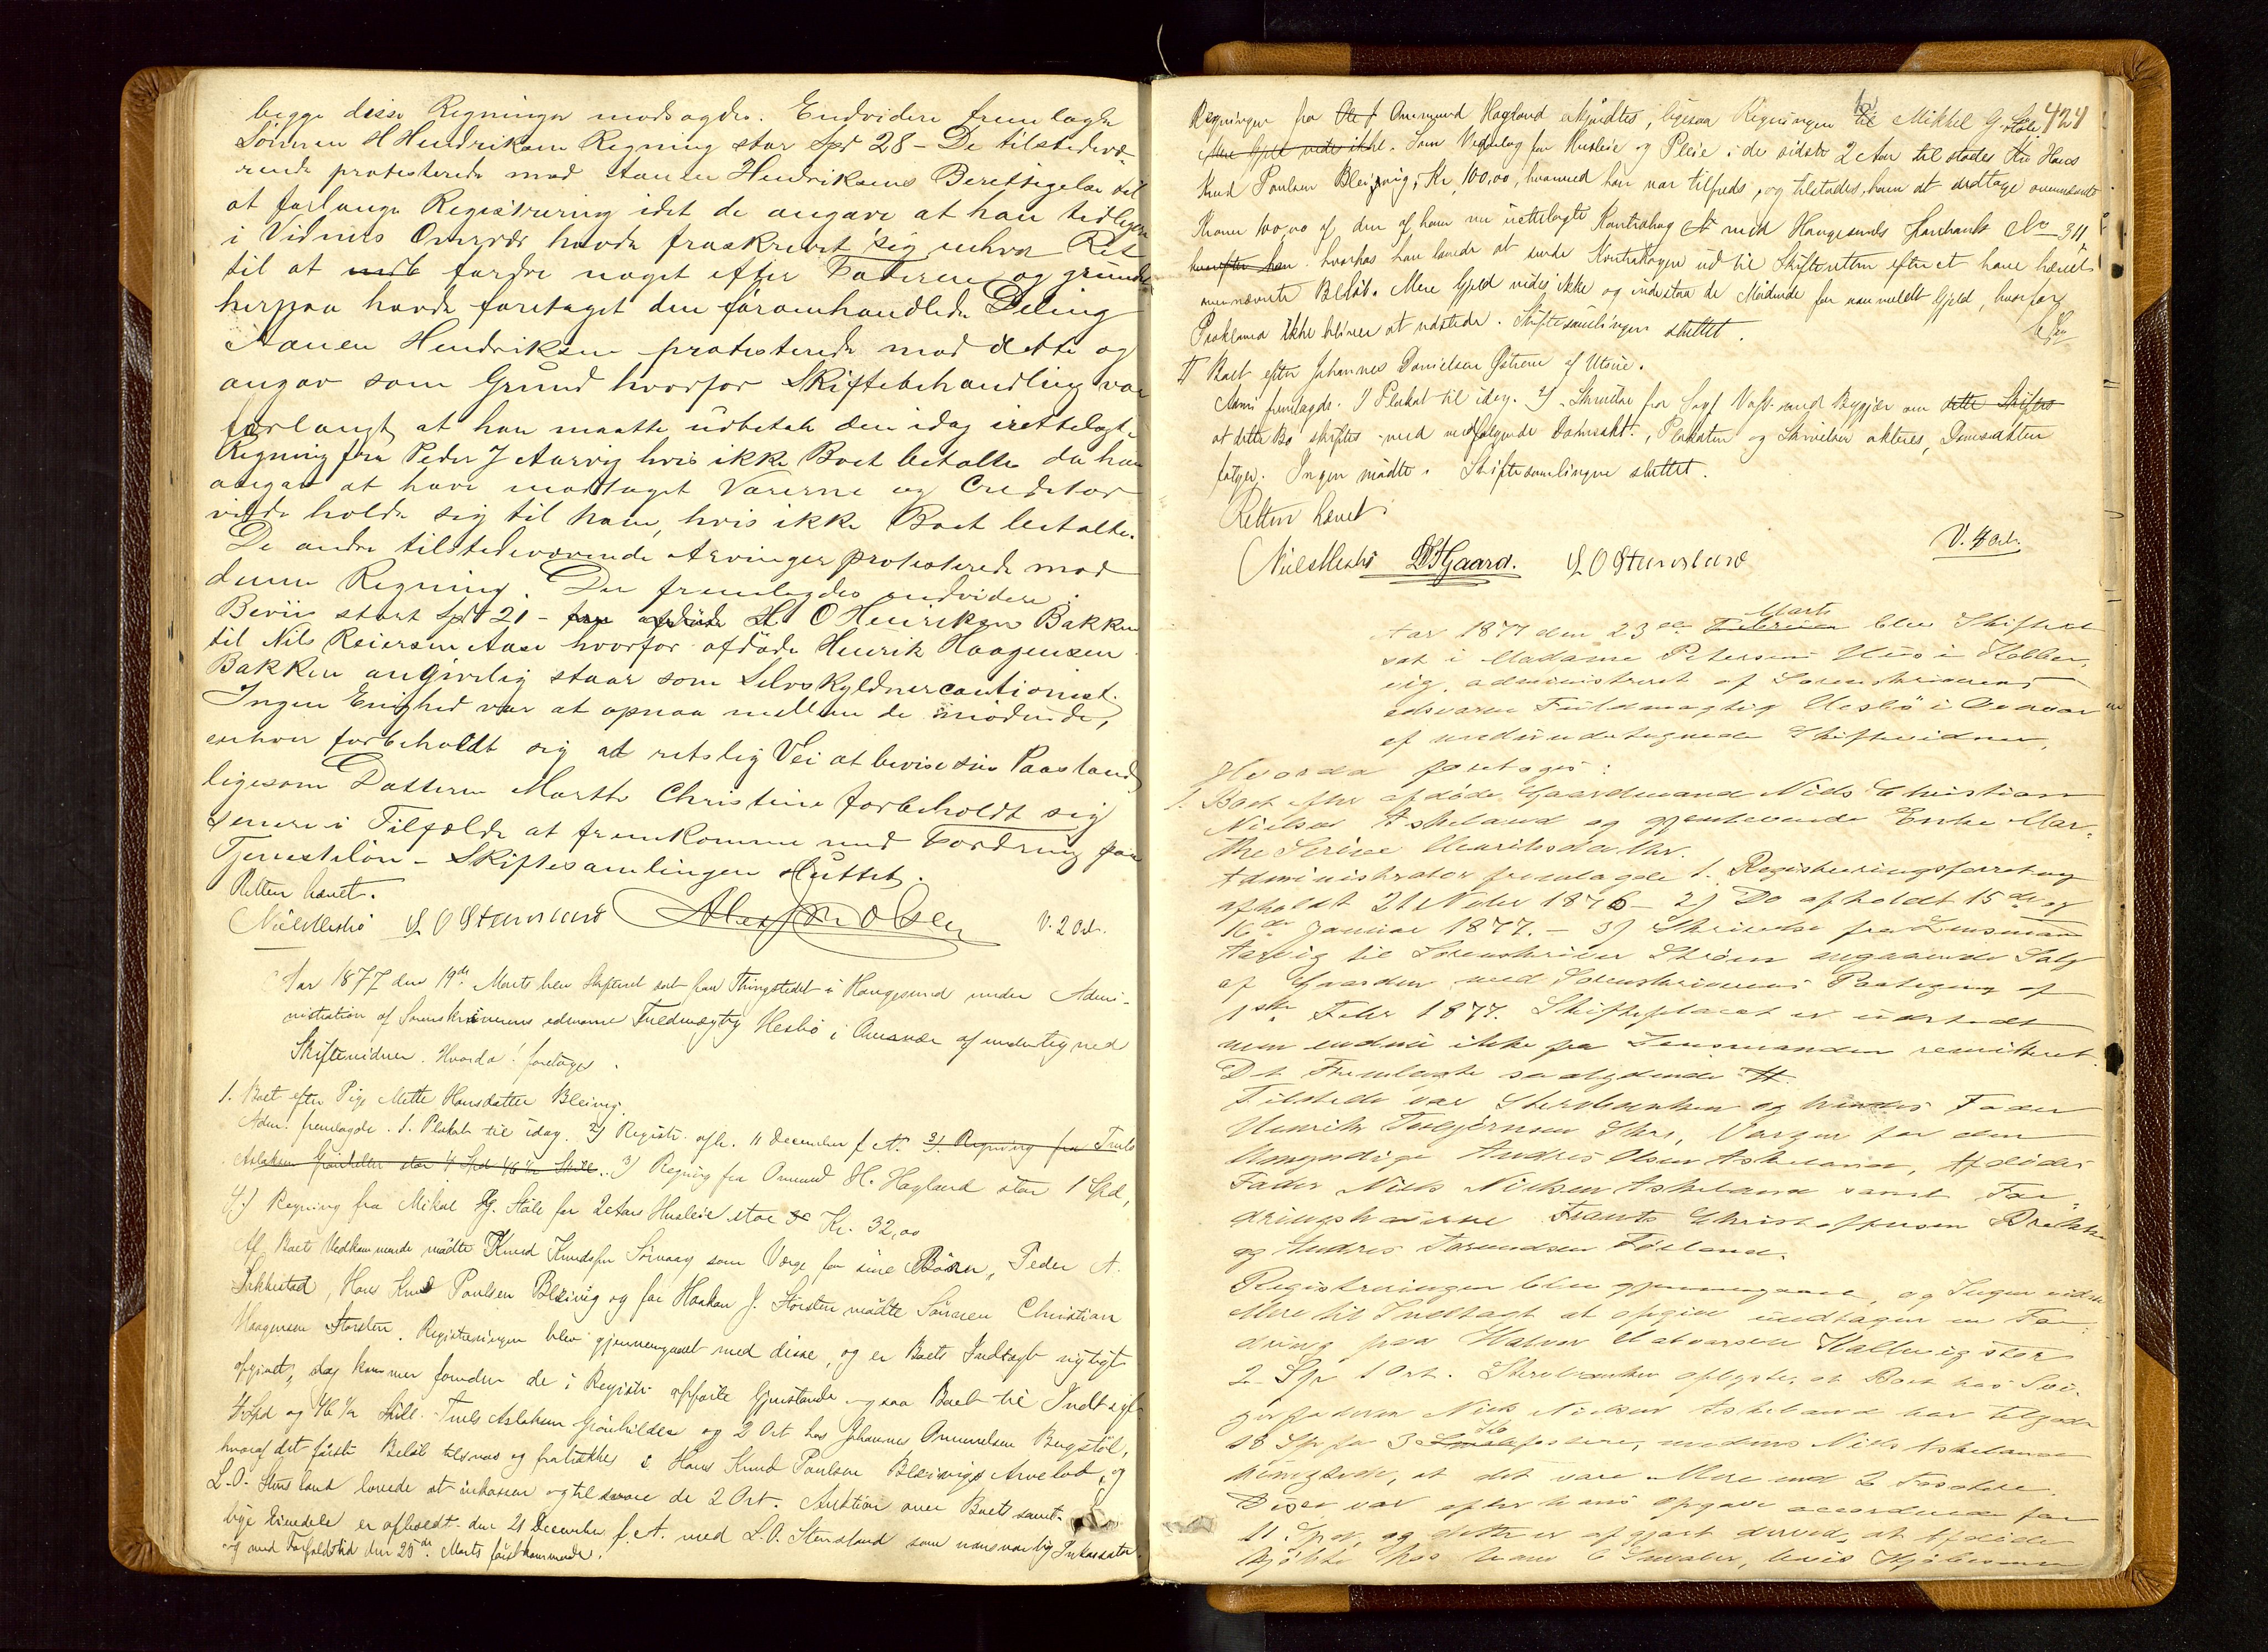 begge disse Regninger modsagdes. Endvidere fremlagde
Sønnen H Hendriksen Regning stor Spd 28 – De tilstedevæ-
rende protesterede mod Aanen Hendriksens Berettigelse til
at forlange Registrering idet de angave at han tidligere
i Vidners Overvær havde fraskrevet sig enhver Ret
til at fordre noget efter Faderen og grundet
herpaa havde foretaget den foromhandlede Deling
Aanen Hendriksen protesterede mod dette og
angav som Grund hvorfor Skiftebehandling var
forlangt, at han maatte udbetale den idag irettelagte
Regning fra Peder J Aarvig hvis ikke Boet betalte da han
angav at have modtaget Varerne og Creditor
vilde holde sig til ham, hvis ikke Boet betalte.
De andre tilstedeværende Arvinger protesterede mod
denne Regning. Der fremlagdes endvidere:
Beviis stort Spd 21 – fra afdøde H O Henriksen Bakken
til Nils Reiersen Aase hvorfor afdøde Henrik Haagensen
Bakken angivelig staar som Selvskyldnercautionist.
Ingen Enighed var at opnaa mellem de mødende,
enhver forbeholdt sig ad retslig Vei at bevise sin Paastand
ligesom Datteren Marthe Christine forbeholdt sig
senere i Tilfælde at fremkomme med Fordring paa
Tjenesteløn – Skiftesamlingen sluttet.
Retten hævet.
Niels Hesbø L O Stensland V. 2 Ort.
Aar 1877 den 19de Marts blev Skifteret sat paa Thingstedet i Haugesund under Admi-
nistration af Sorenskriverens edsvorne Fuldmægtig Hesbø i Overvær af undertegned
Skiftevidner. Hvorda! foretoges
1. Boet efter Pige Mette Hansdatter Bleivig.
Adm. fremlagde. 1. Plakat til idag. 2) Registr. afh. 11 December f. A. 3) Regning fra Truls
Aslaksen Grønhilder stor 4 Spd 46 ½ Skill. 3) Regning fra Omund H. Hagland stor 1 Spd,
4) Regning fra Mikal G. Støle for 2 Aars Husleie stor Kr. 32,00
Af Boets Vedkommende mødte Knud Knudsen Sørvaag som Værge for sine Børn, Peder A.
Sakkestad, Hans Knud Poulsen Bleivig og for Haakon J. Størsten mødte Sønnen Christian
Haagensen Størsten. Registreringen blev gjennemgaaet med disse, og er Boets Indtægt rigtigt
opgivet, dog kommer foruden de i Registr. opførte Gjenstande ogsaa Boet til Indtægt
4 Spd og 46 ½ Skill. Truls Aslaksen Grønhilder og 2 Ort hos Johannes Omundsen Bergstøl,
hvoraf det første Beløb tilsvares og fratrækkes i Hans Knud Poulsen Bleivigs Arvelod, og
L. O. Stensland lovede at inkassere og tilsvare de 2 Ort. Auktion over Boets samt-
lige Eiendele er afholdt den 21 December f. A. med L. O. Stensland som ansvarlig Inkassator
og med Forfaldstid den 25de Marts førstkommende.
424
Regningen fra Ole J Omund Hagland erkjendtes, ligesaa Regningen fra Mikkel G. Støle
Mere Gjeld vides ikke. Som Vederlag for Husleie og Pleie i de sidste 2 Aar tilstodes Hans
Knud Poulsen Bleivig, Kr. 100,00, hvormed han var tilfreds, og tilstodes ham at udtage ovennævnte
Kroner 100,00 af den af ham nu irettelagte Kontrabog med Haugesunds Sparebank No 311,
hvorefter han hvorhos han lovede at sende Kontrabogen ud til Skifteretten efter at have hævet
ovennævnte Beløb. Mere Gjeld vides ikke og indestaa de Mødende for anmeldt Gjeld, hvorfor
Proklama ikke bliver at udstede. Skiftesamlingen sluttet.
II Boet efter Johannes Danielsen Østrem af Utsire.
Adm. fremlagde. 1 Plakat til idag. 2) Skrivelse fra Sogf. med Begjær om dette Skiftes
at dette Bo skiftes med medfølgende Dødsakt., Plakaten og Skrivelsen akteres,
følger. Ingen mødte. Skiftesamlingen sluttet.
Retten hævet.
V. 4 Ort.
Niels Hesbø L O Stensland
Aar 1877 den 23de Februar Marts blev Skifteret
sat i Madame Petersens Huus i Kobber-
vig, administreret af Sorenskriverens
edsvorne Fuldmægtig Hesbø i Overvær
af medundertegnede Skiftevidner,
Hvorda foretoges:
1. Boet efter afdøde Gaardmand Niels Christian
Nielsen Askeland og gjenlevende Enke Mar-
the Serine Henriksdatter.
Administrator fremlagde 1. Registreringsforretning
afholdt 21 Novbr 1876 – 2) Do afholdt 15de og
16de Januar 1877. – 3) Skrivelse fra Lensmand
Aarvig til Sorenskriver Strøm angaaende Salg
af Gaarden med Sorenskriverens Paategning af
1ste Febr 1877. Skifteplacat er udstedt
men endnu ikke fra Lensmanden remitteret.
Det Fremlagte saalydende
Tilstede var Sterboenken og hendes Fader
Henrik Torbjørnsen Skre, Værgen for den
Umyndige Andres Olsen Askeland, Afdødes
Fader Niels Nielsen Askeland samt For-
dringshaverne Frants Christophersen
og Andres
Registreringen blev gjennemgaaet, og Ingen vidste
Mere til Indtægt at opgive undtagen en For-
dring paa Halvor Halvorsen stor
2 Spd 1 Ort. Sterboenken oplyste, at Boet hos Svi-
gerfaderen Niels Nielsen Askeland har tilgode
18 Spd for 3 medens Niels Askeland
benægtede, at det vare Mere end 2
Disse var efter hans Opgave accorderede for
11 Spd, og dette er afgjort derved, at Afdøde
kjøbte hos ham 6 hvis